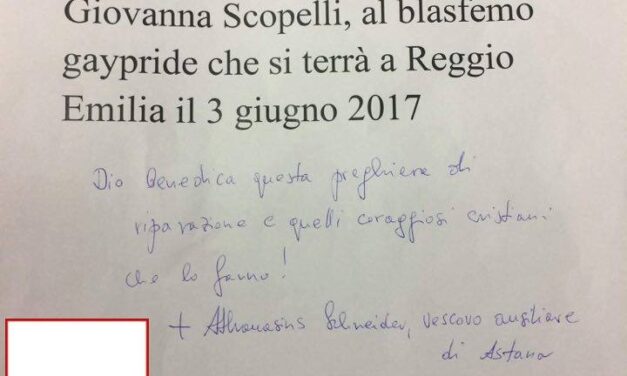 Giovanna Scopelli, al blasfemo
gaypride che si terrà a Reggio
Emilia il 3 giugno 2017
Dio Benedica questa preghiera di
riparazione e quelli coraggiosi cristiani
che lo fanno!
+ Athanasius Schneider, vescovo ausiliare
di Astana